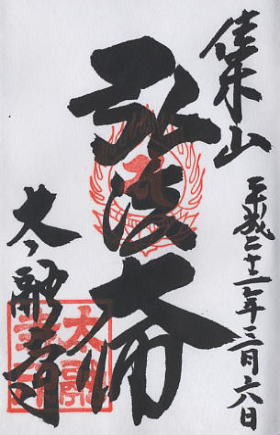 佳木山
平成二十二年三月六日
弘法大師
太融寺